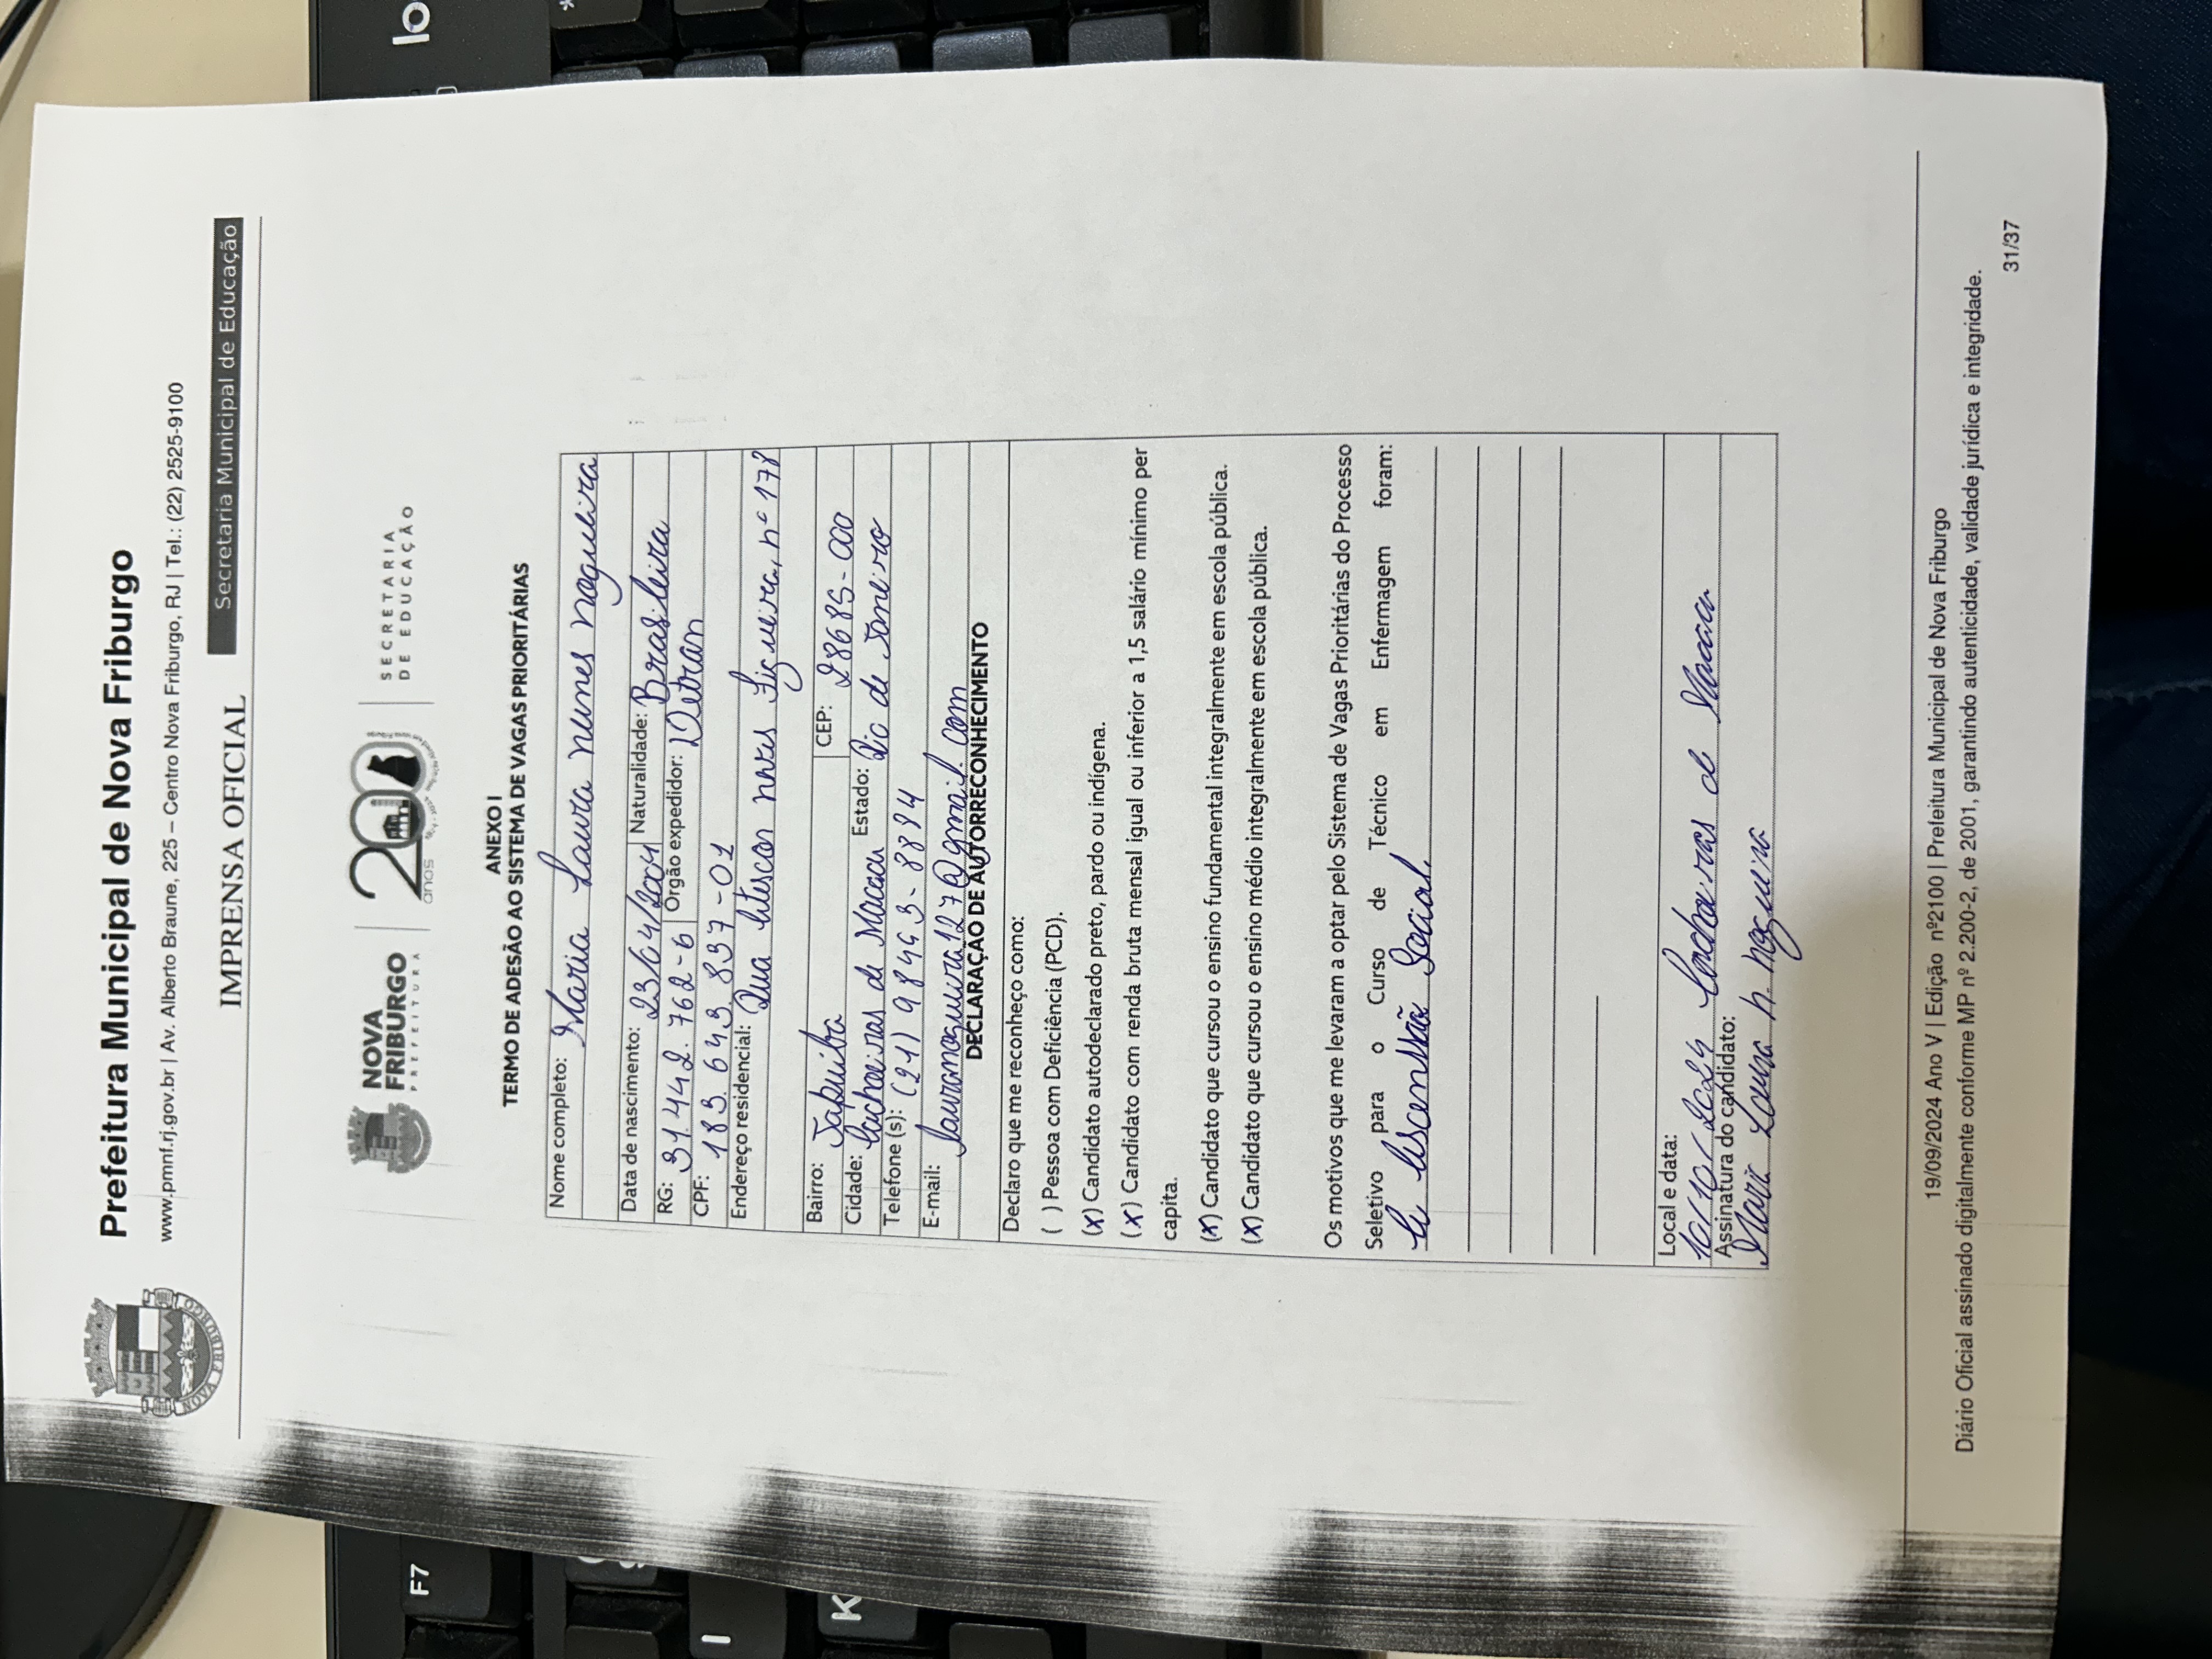 Prefeitura Municipal de Nova Friburgo
www.pmnf.rj.gov.br | Av. Alberto Braune, 225 – Centro Nova Friburgo, RJ | Tel.: (22) 2525-9100
IMPRENSA OFICIAL
Secretaria Municipal de Educação
NOVA FRIBURGO
NOVA FRIBURGO PREFEITURA
200 anos
SECRETARIA DE EDUCAÇÃO
ANEXO I
TERMO DE ADESÃO AO SISTEMA DE VAGAS PRIORITÁRIAS
Nome completo: Maria Laura nunes nogueira
Data de nascimento: 23/04/2004 Naturalidade: Brasileira
RG: 31.442.762-6 Órgão expedidor: Detran
CPF: 183.643.837-01
Endereço residencial: Rua neves Figueira, nº 178
Bairro: Japuiba CEP: 28685-000
Cidade: Cachoeiras de Macacu Estado: Rio de Janeiro
Telefone (s): (21) 98493-8884
E-mail: lauranogueira127@gmail.com
DECLARAÇÃO DE AUTORRECONHECIMENTO
Declaro que me reconheço como:
( ) Pessoa com Deficiência (PCD).
(x) Candidato autodeclarado preto, pardo ou indígena.
(x) Candidato com renda bruta mensal igual ou inferior a 1,5 salário mínimo per
capita.
(x) Candidato que cursou o ensino fundamental integralmente em escola pública.
(x) Candidato que cursou o ensino médio integralmente em escola pública.
Os motivos que me levaram a optar pelo Sistema de Vagas Prioritárias do Processo
Seletivo para o Curso de Técnico em Enfermagem foram:
A Ascenssão Social.
Local e data:
10/10/2024 Cachoeiras de Macacu
Assinatura do candidato:
Maria Laura N. nogueira
19/09/2024 Ano V | Edição nº2100 | Prefeitura Municipal de Nova Friburgo
Diário Oficial assinado digitalmente conforme MP nº 2.200-2, de 2001, garantindo autenticidade, validade jurídica e integridade.
31/37
F7
K
I
lo